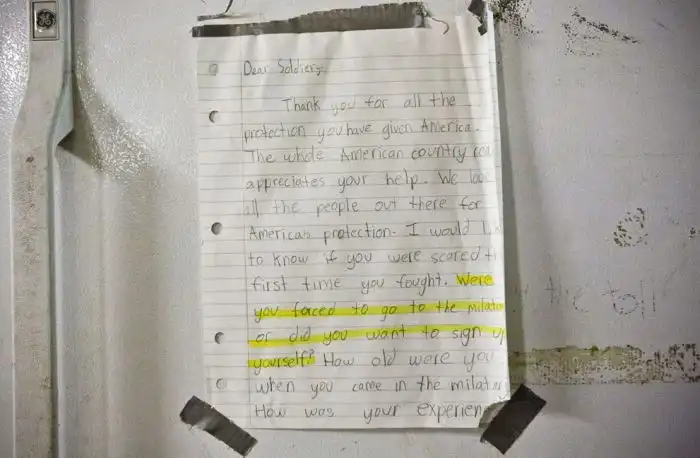 Dear Soldiers,
Thank you for all the
protection you have given America.
The whole American country
appreciates your help. We
all the people out there for
Americas protection. I would
to know if you were scared
first time you fought. Were
you forced to go to the
or did you want to sign up
yourself? How old were you
when you came in the
How was your